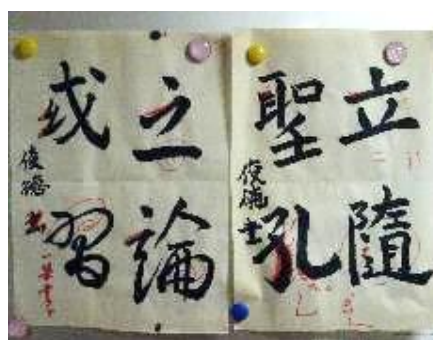 立隨
聖孔
俊德書
之論
或習
俊德書